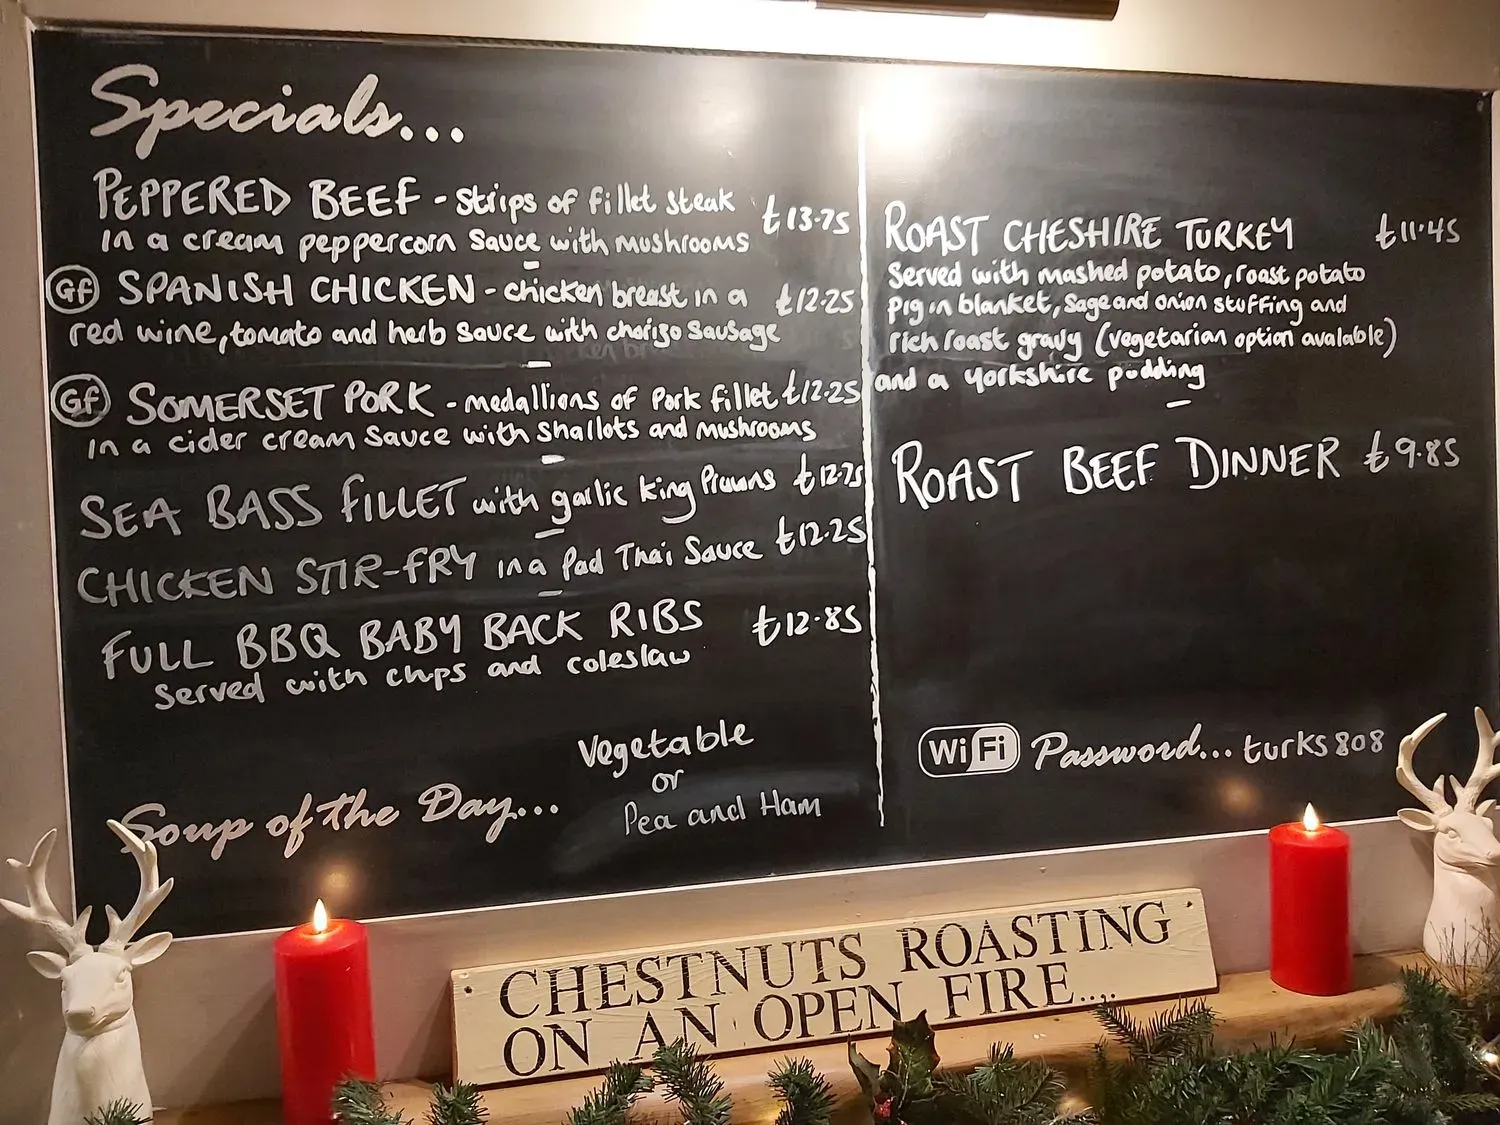 Specials...
PEPPERED BEEF - strips of fillet steak £13.75
in a cream peppercorn sauce with mushrooms
Gf SPANISH CHICKEN - chicken breast in a £12.25
red wine, tomato and herb sauce with chorizo sausage
Gf SOMERSET PORK - medallions of pork fillet £12.25
in a cider cream sauce with shallots and mushrooms
SEA BASS FILLET with garlic king prawns £12.75
CHICKEN STIR-FRY in a Pad Thai Sauce £12.25
FULL BBQ BABY BACK RIBS £12.85
served with chips and coleslaw
Soup of the Day...
Vegetable
or
Pea and Ham
ROAST CHESHIRE TURKEY £11.45
Served with mashed potato, roast potato
pig in blanket, sage and onion stuffing and
rich roast gravy (vegetarian option available)
and a yorkshire pudding
ROAST BEEF DINNER £9.85
WiFi Password... turks808
CHESTNUTS ROASTING
ON AN OPEN FIRE....